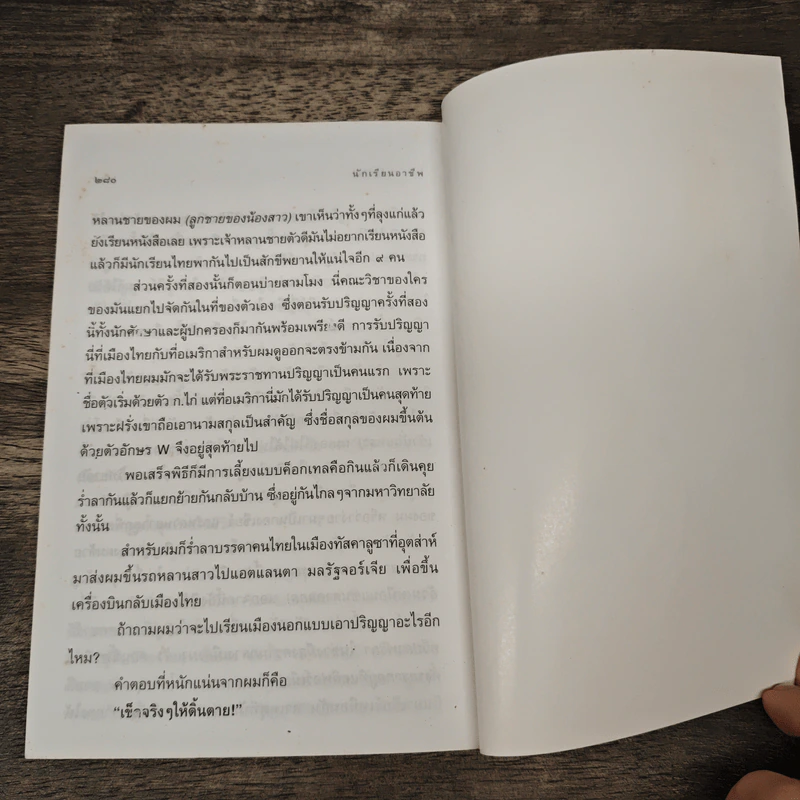 ๒๘๐
นักเรียนอาชีพ
หลานชายของผม (ลูกชายของน้องสาว) เขาเห็นว่าทั้งๆที่ลุงแก่แล้ว
ยังเรียนหนังสือเลย เพราะเจ้าหลานชายตัวดีมันไม่อยากเรียนหนังสือ
แล้วก็มีนักเรียนไทยพากันไปเป็นสักขีพยานให้แน่ใจอีก ๙ คน
ส่วนครั้งที่สองนั้นก็ตอนบ่ายสามโมง นี่คณะวิชาของใคร
ของมันแยกไปจัดกันในที่ของตัวเอง ซึ่งตอนรับปริญญาครั้งที่สอง
นี้ทั้งนักศึกษาและผู้ปกครองก็มากันพร้อมเพรียงดี การรับปริญญา
นี่ที่เมืองไทยกับที่อเมริกาสำหรับผมดูออกจะตรงข้ามกัน เนื่องจาก
ที่เมืองไทยผมมักจะได้รับพระราชทานปริญญาเป็นคนแรก เพราะ
ชื่อตัวเริ่มด้วยตัว ก.ไก่ แต่ที่อเมริกานี่มักได้รับปริญญาเป็นคนสุดท้าย
เพราะฝรั่งเขาถือเอานามสกุลเป็นสำคัญ ซึ่งชื่อสกุลของผมขึ้นต้น
ด้วยตัวอักษร W จึงอยู่สุดท้ายไป
พอเสร็จพิธีก็มีการเลี้ยงแบบค็อกเทลคือกินแล้วก็เดินคุย
ร่ำลากันแล้วก็แยกย้ายกันกลับบ้าน ซึ่งอยู่กันไกลๆจากมหาวิทยาลัย
ทั้งนั้น
สำหรับผมก็ร่ำลาบรรดาคนไทยในเมืองทัสคาลูซาที่อุตส่าห์
มาส่งผมขึ้นรถหลานสาวไปแอตแลนตา มลรัฐจอร์เจีย เพื่อขึ้น
เครื่องบินกลับเมืองไทย
ถ้าถามผมว่าจะไปเรียนเมืองนอกแบบเอาปริญญาอะไรอีก
ไหม?
คำตอบที่หนักแน่นจากผมก็คือ
“เข็าจริงๆให้ดิ้นตาย!”